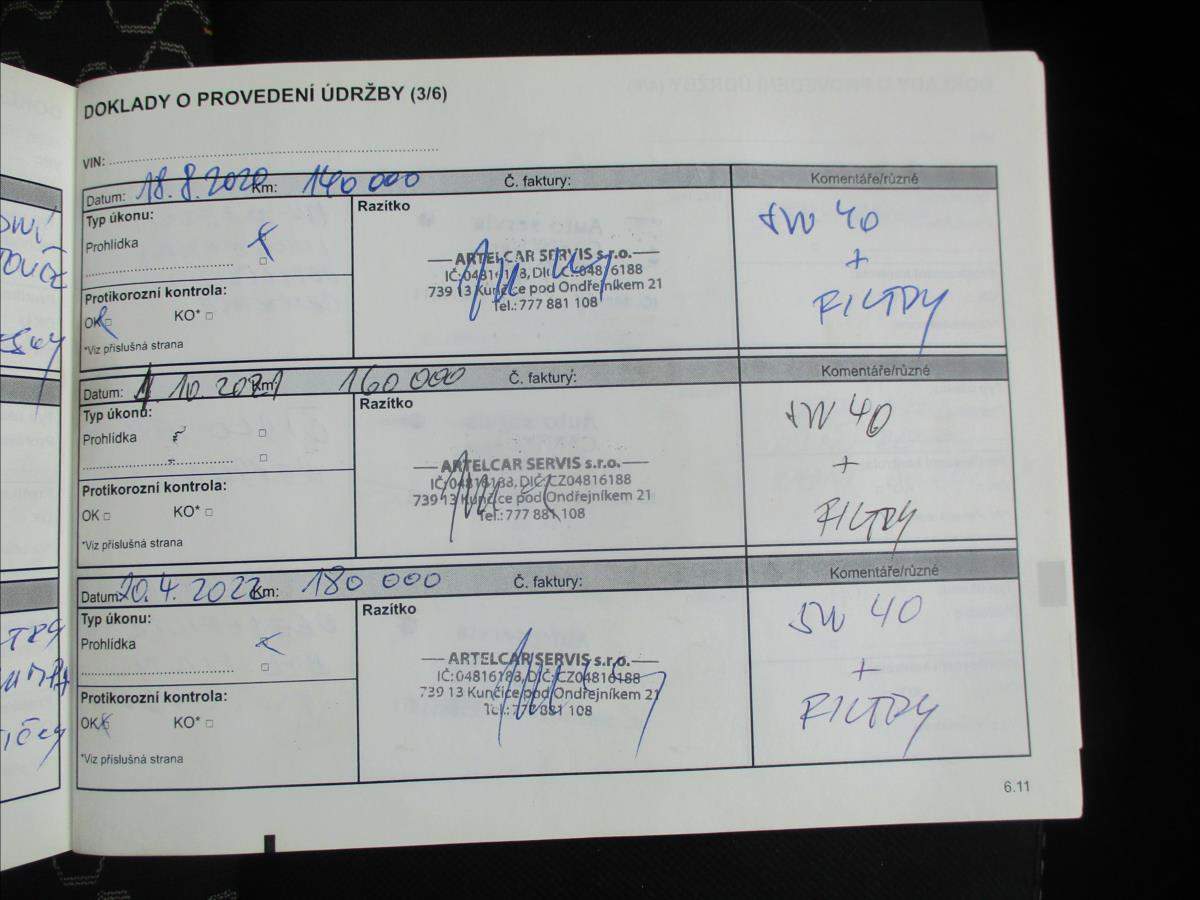 DOKLADY O PROVEDENÍ ÚDRŽBY (3/6)
VIN:
Datum: 18.8.2020 Km: 140 000 Č. faktury: Komentáře/různé
Typ úkonu: Razítko
Prohlídka
5W 40
+
FILTRY
ARTELCAR SERVIS s.r.o.
IČ:04816188, DIČ:CZ04816188
739 13 Kunčice pod Ondřejníkem 21
Tel.: 777 881 108
Protikorozní kontrola:
OK KO*
*Viz příslušná strana
Datum: 1.10.2021 Km: 160 000 Č. faktury: Komentáře/různé
Typ úkonu: Razítko
Prohlídka
5W 40
+
FILTRY
ARTELCAR SERVIS s.r.o.
IČ:04816188, DIČ:CZ04816188
739 13 Kunčice pod Ondřejníkem 21
Tel.: 777 881 108
Protikorozní kontrola:
OK KO*
*Viz příslušná strana
Datum: 20.4.2022 Km: 180 000 Č. faktury: Komentáře/různé
Typ úkonu: Razítko
Prohlídka
5W 40
+
FILTRY
ARTELCAR SERVIS s.r.o.
IČ:04816188, DIČ:CZ04816188
739 13 Kunčice pod Ondřejníkem 21
Tel.: 777 881 108
Protikorozní kontrola:
OK KO*
*Viz příslušná strana
6.11